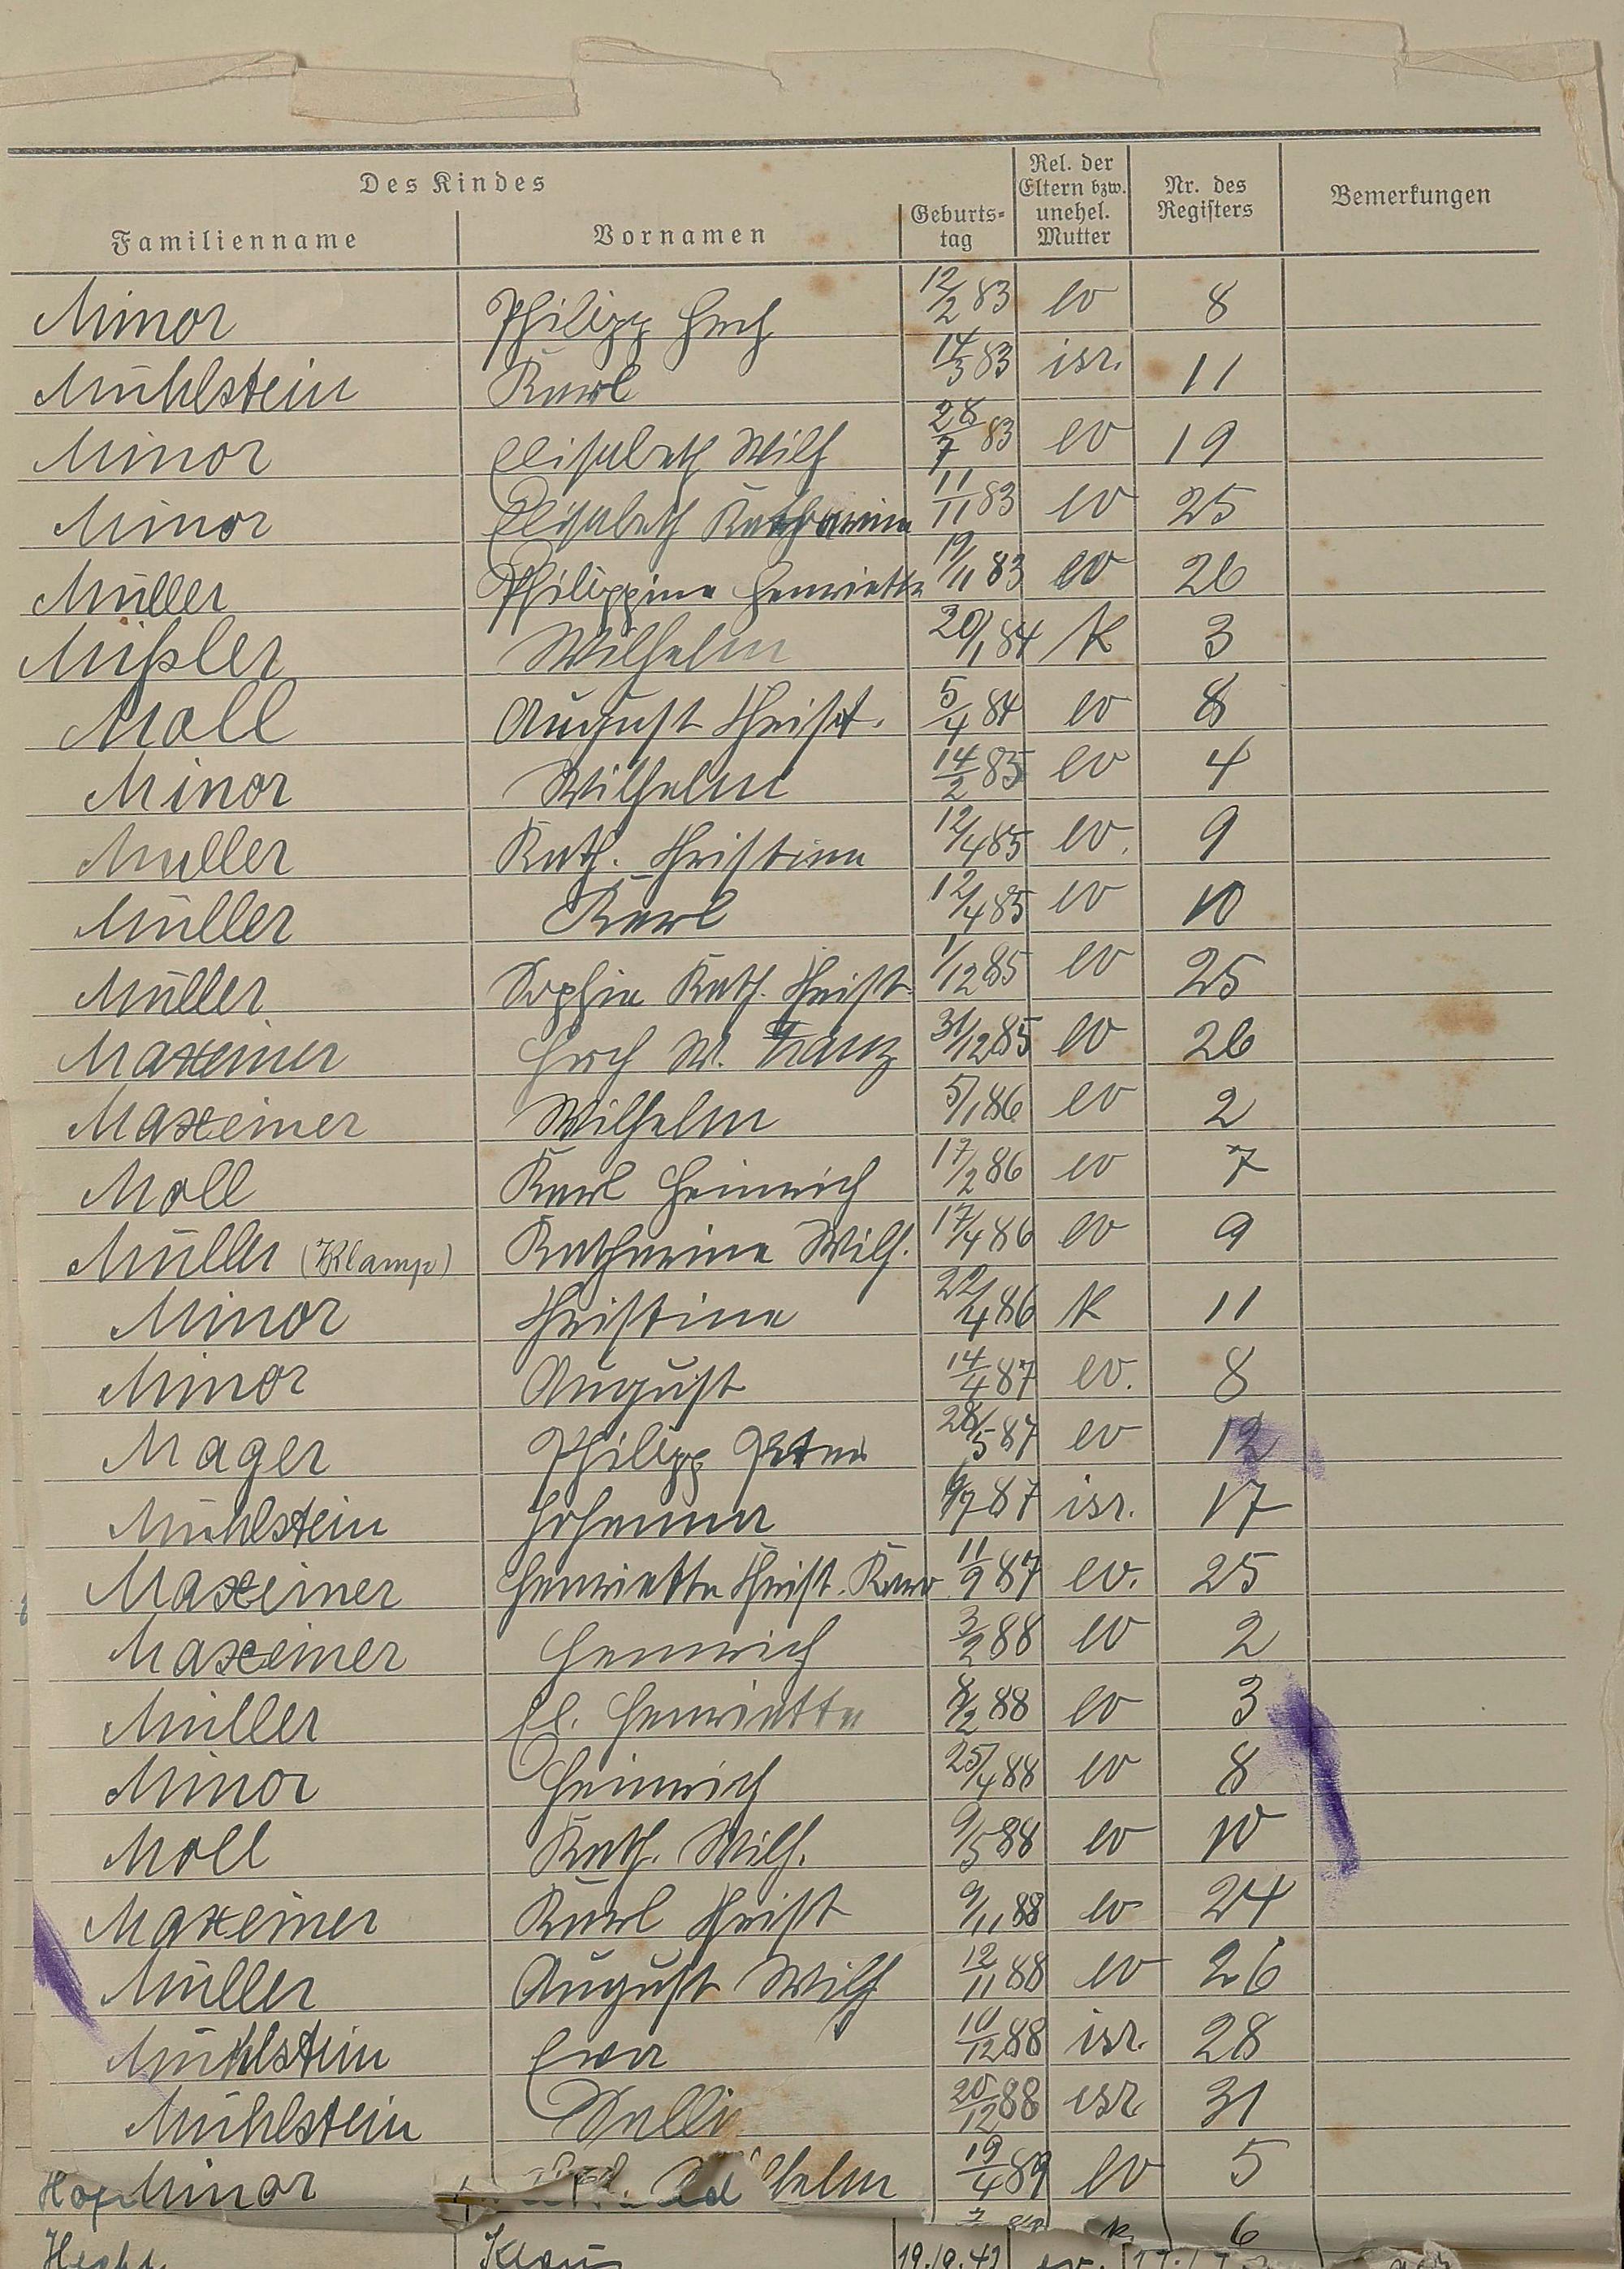 Des Kindes
Familienname Vornamen Geburts- tag Rel. der Eltern bzw. unehel. Mutter Nr. des Registers Bemerkungen
Minor Philipp Hrch 12/2 83 ev 8
Mühlstein Karl 14/3 83 isr. 11
Minor Elisabeth Wilh 28/7 83 ev 19
Minor Elisabeth Katharina 11/11 83 ev 25
Müller Philippine Henriette 19/11 83 ev 26
Mißler Wilhelm 20/1 84 K 3
Moll August Christ. 5/4 84 ev 8
Minor Wilhelm 14/2 85 ev 4
Muller Kath. Christina 12/4 85 ev. 9
Müller Karl 12/4 85 ev 10
Müller Sophie Kath. Christ. 1/12 85 ev 25
Maxeiner Hrch W. Franz 31/12 85 ev 26
Maxeiner Wilhelm 5/1 86 ev 2
Moll Karl Heinrich 17/2 86 ev 7
Müller (Klamp) Katharina Wilh. 17/4 86 ev 9
Minor Christina 22/4 86 K 11
Minor August 14/4 87 ev. 8
Mager Philipp Peter 28/5 87 ev 12
Mühlstein Johanna /7 87 isr. 17
Maxeiner Henriette Christ. Karo 11/9 87 ev. 25
Maxeiner Heinrich 3/2 88 ev 2
Müller El. Henriette 8/2 88 ev 3
Minor Heinrich 25/4 88 ev 8
Moll Kath. Wilh. 9/5 88 ev 10
Maxeiner Karl Christ 9/11 88 ev 24
Müller August Wilh 12/11 88 ev 26
Mühlstein Eva 10/12 88 isr. 28
Mühlstein Selli 20/12 88 isr. 31
Minor helm 19/4 89 ev 5
k. 6
Klaus ev.